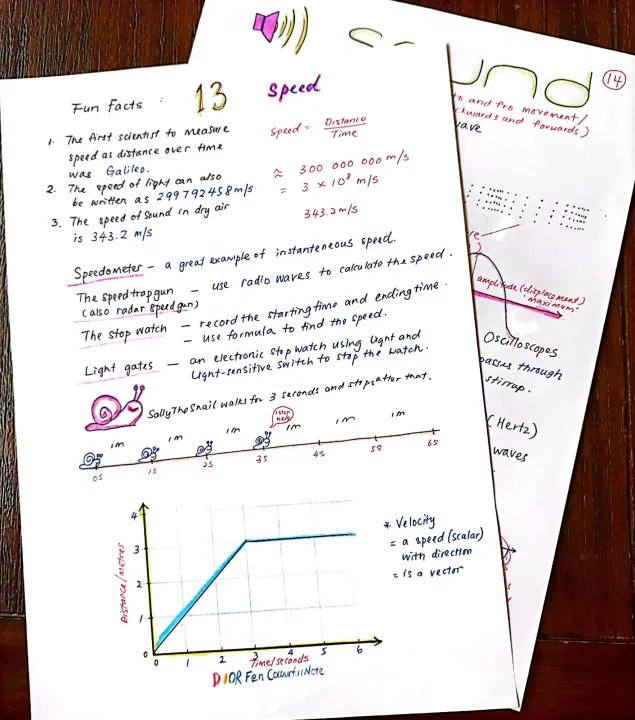 Fun facts :
13
Speed
1. The first scientist to measure
speed as distance over time
was Galileo.
2. The speed of light can also
be written as 299792458m/s
3. The speed of sound in dry air
is 343.2 m/s
Speed = Distance
Time
≈ 300 000 000 m/s
= 3 × 10⁸ m/s
343.2m/s
Speedometer – a great example of instanteneous speed.
The speed trap gun – use radio waves to calculate the speed.
(also radar speed gun)
The stop watch – record the starting time and ending time.
– use formula to find the speed.
Light gates – an electronic stop watch using light and
light-sensitive switch to stop the watch.
Sally The Snail walks for 3 seconds and stops after that.
I stop here
1m 1m 1m 1m 1m 1m
0s 1s 2s 3s 4s 5s 6s
Distance/metres
4
3
2
1
0
0 1 2 3 4 5 6
Time/seconds
* Velocity
= a speed (scalar)
with direction
= is a vector
DIOR Fen Colourful Note
14
und
to and fro movement/
ckwards and forwards)
wave
amplitude (displacement)
"maximum"
Oscilloscopes
passes through
stirrup.
(Hertz)
waves